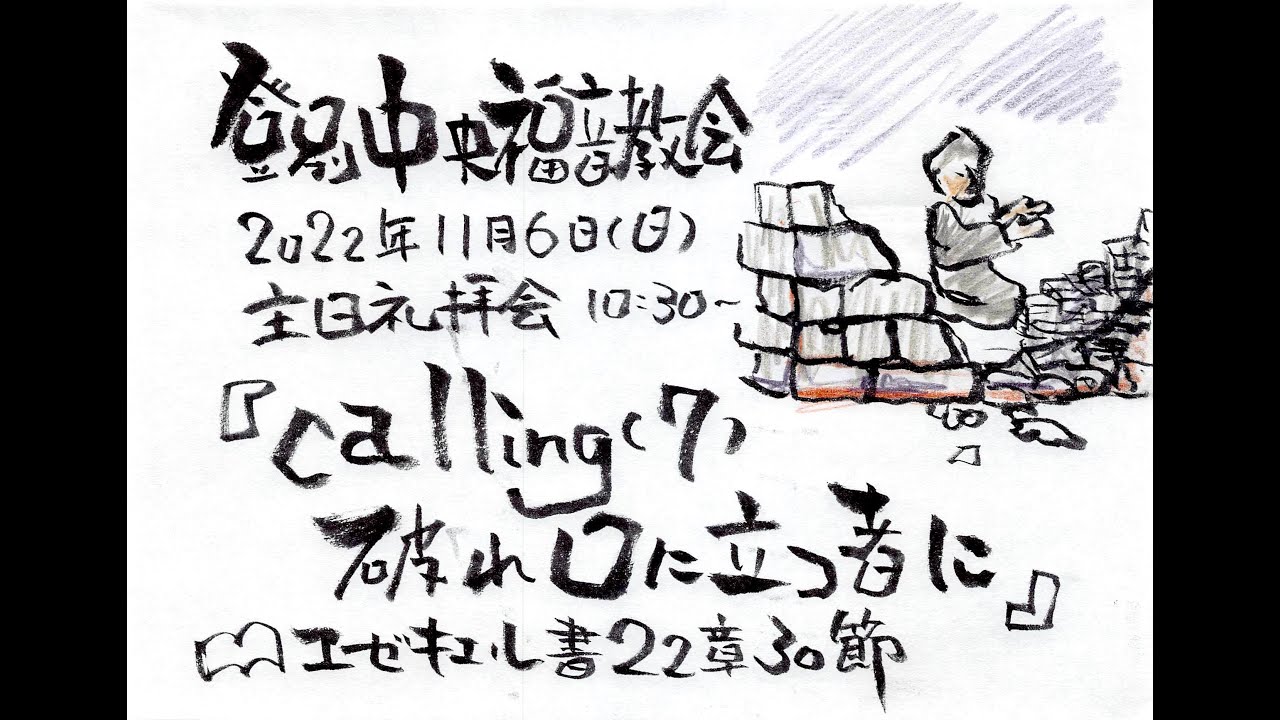 登別中央福音教会
2022年11月6日(日)
主日礼拝会 10:30~
『calling(7)
破れ口に立つ者に』
エゼキエル書22章30節